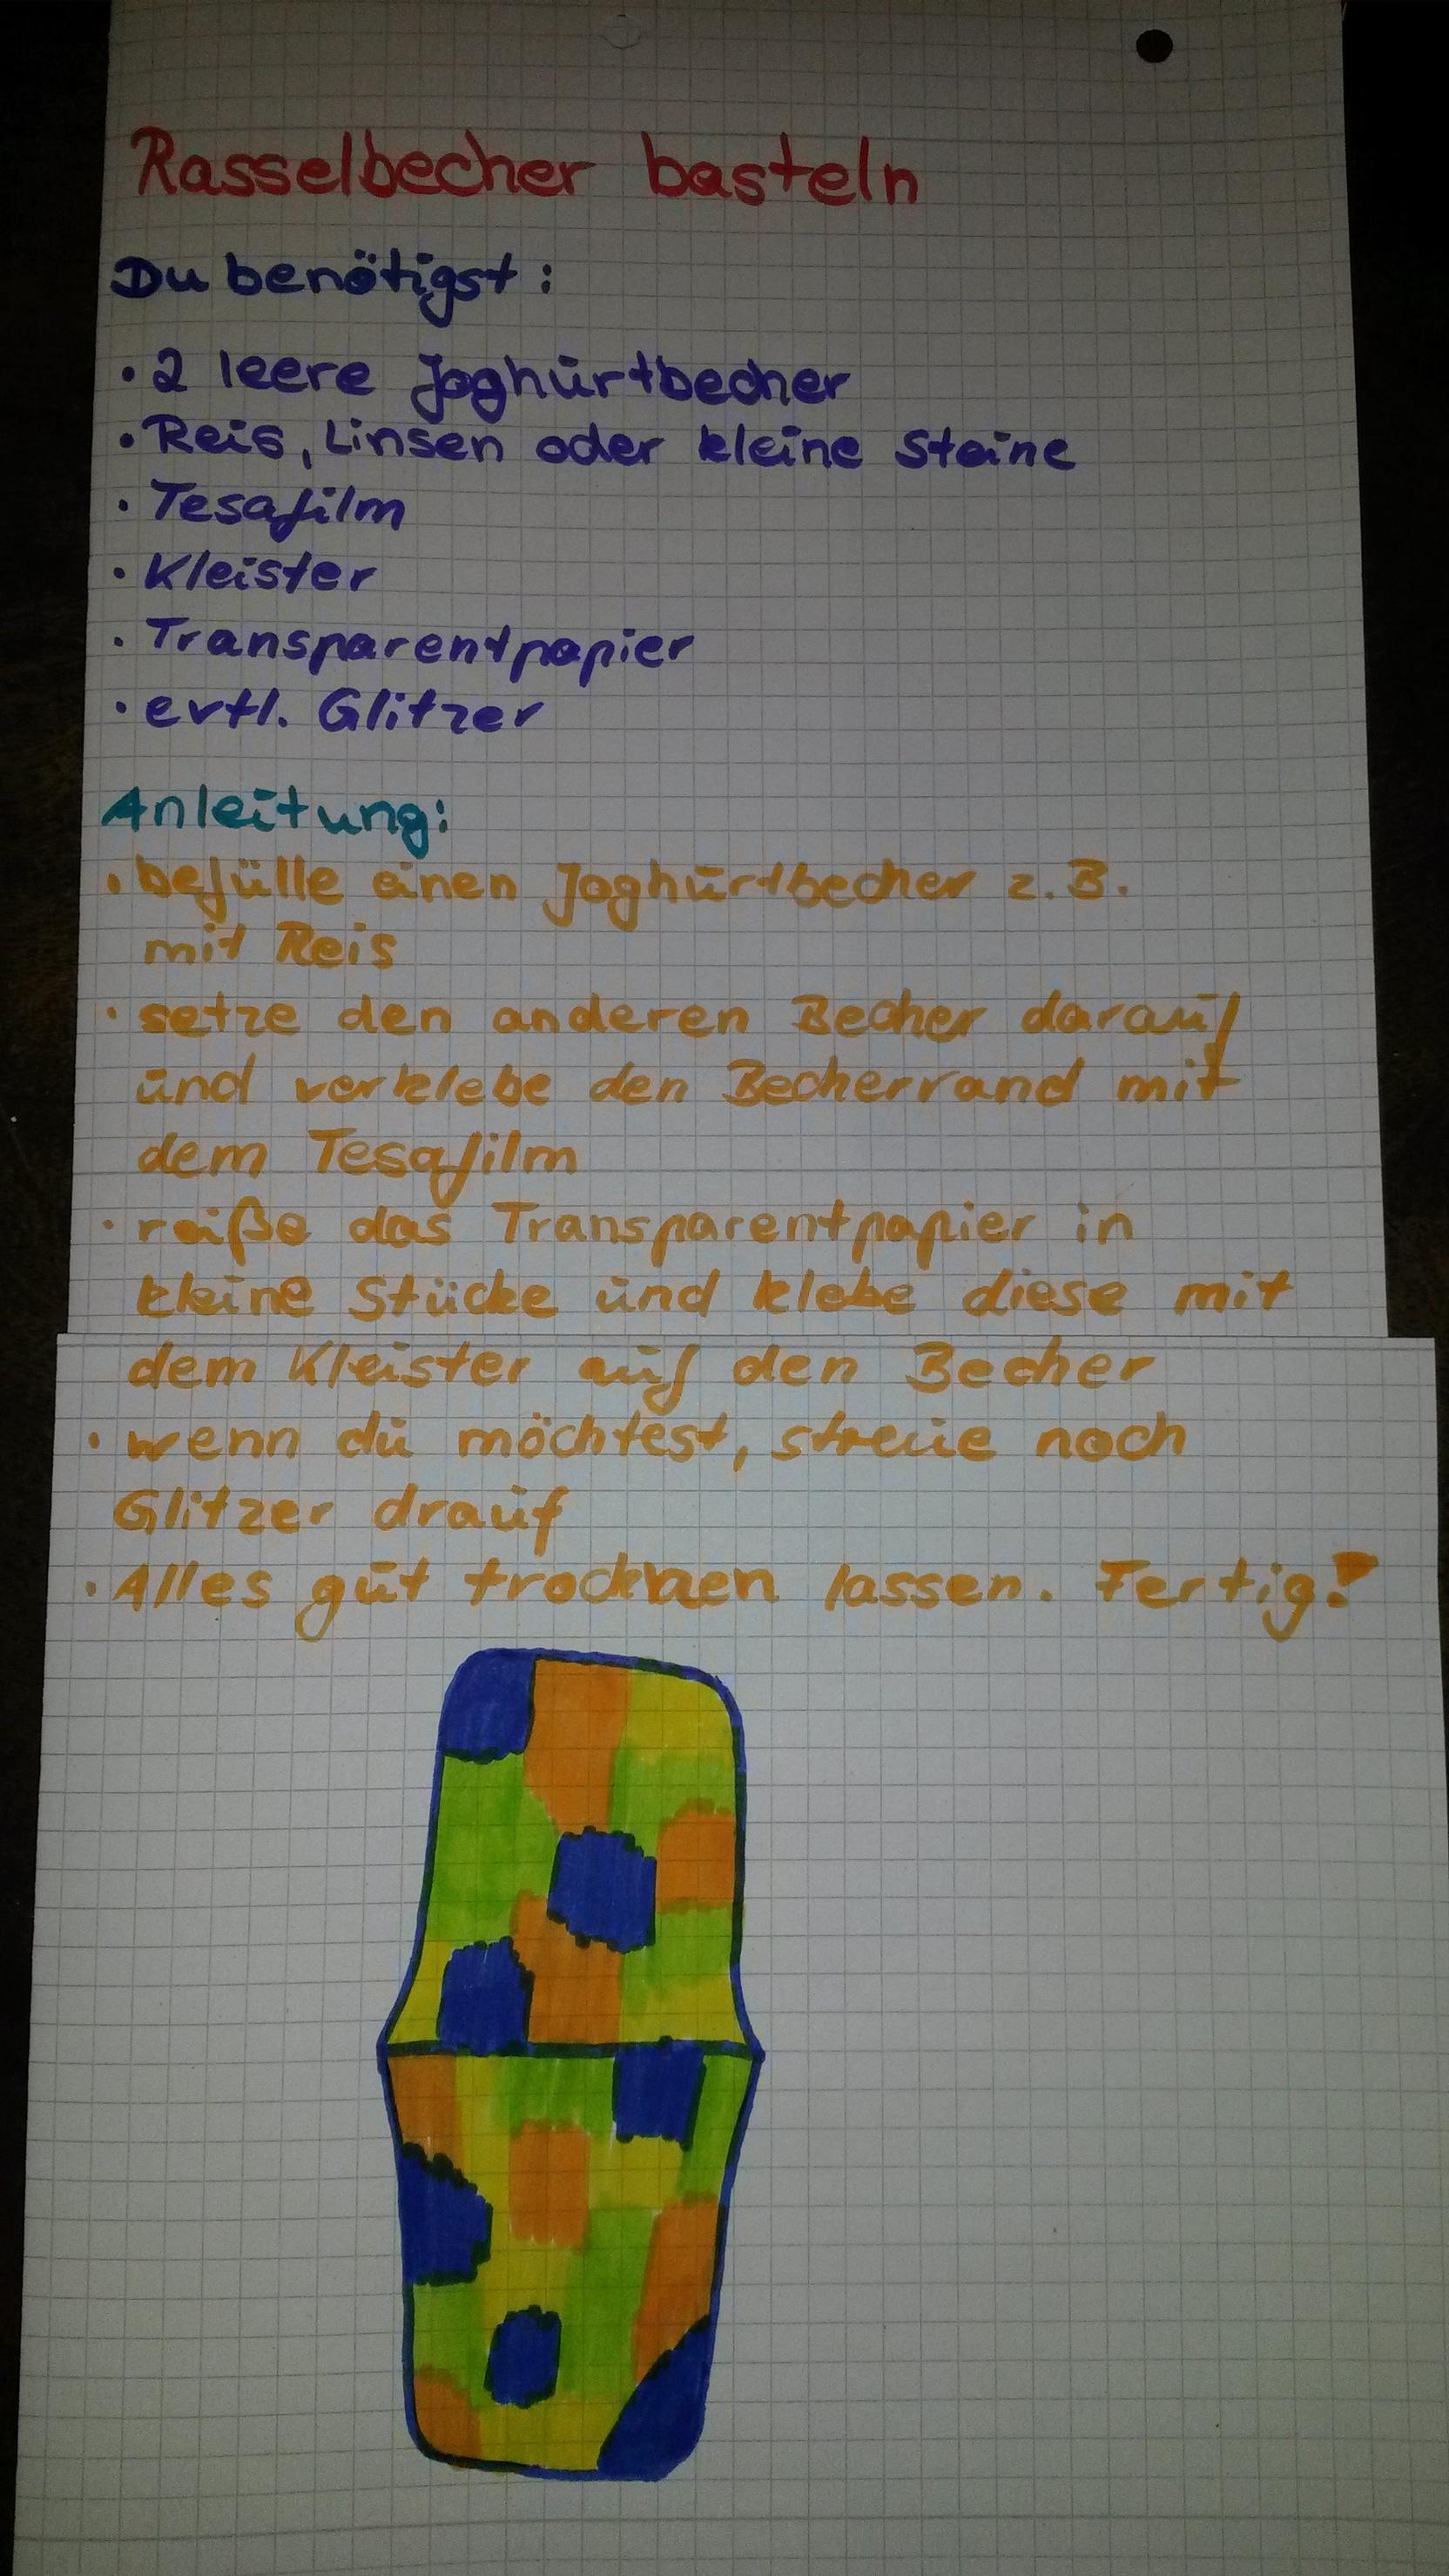 Rasselbecher basteln
Du benötigst:
• 2 leere Joghurtbecher
• Reis, Linsen oder kleine Steine
• Tesafilm
• Kleister
• Transparentpapier
• evtl. Glitzer
Anleitung:
• befülle einen Joghurtbecher z.B.
mit Reis
• setze den anderen Becher darauf
und verklebe den Becherrand mit
dem Tesafilm
• reiße das Transparentpapier in
kleine Stücke und klebe diese mit
dem Kleister auf den Becher
• wenn du möchtest, streue noch
Glitzer drauf
• Alles gut trocknen lassen. Fertig!